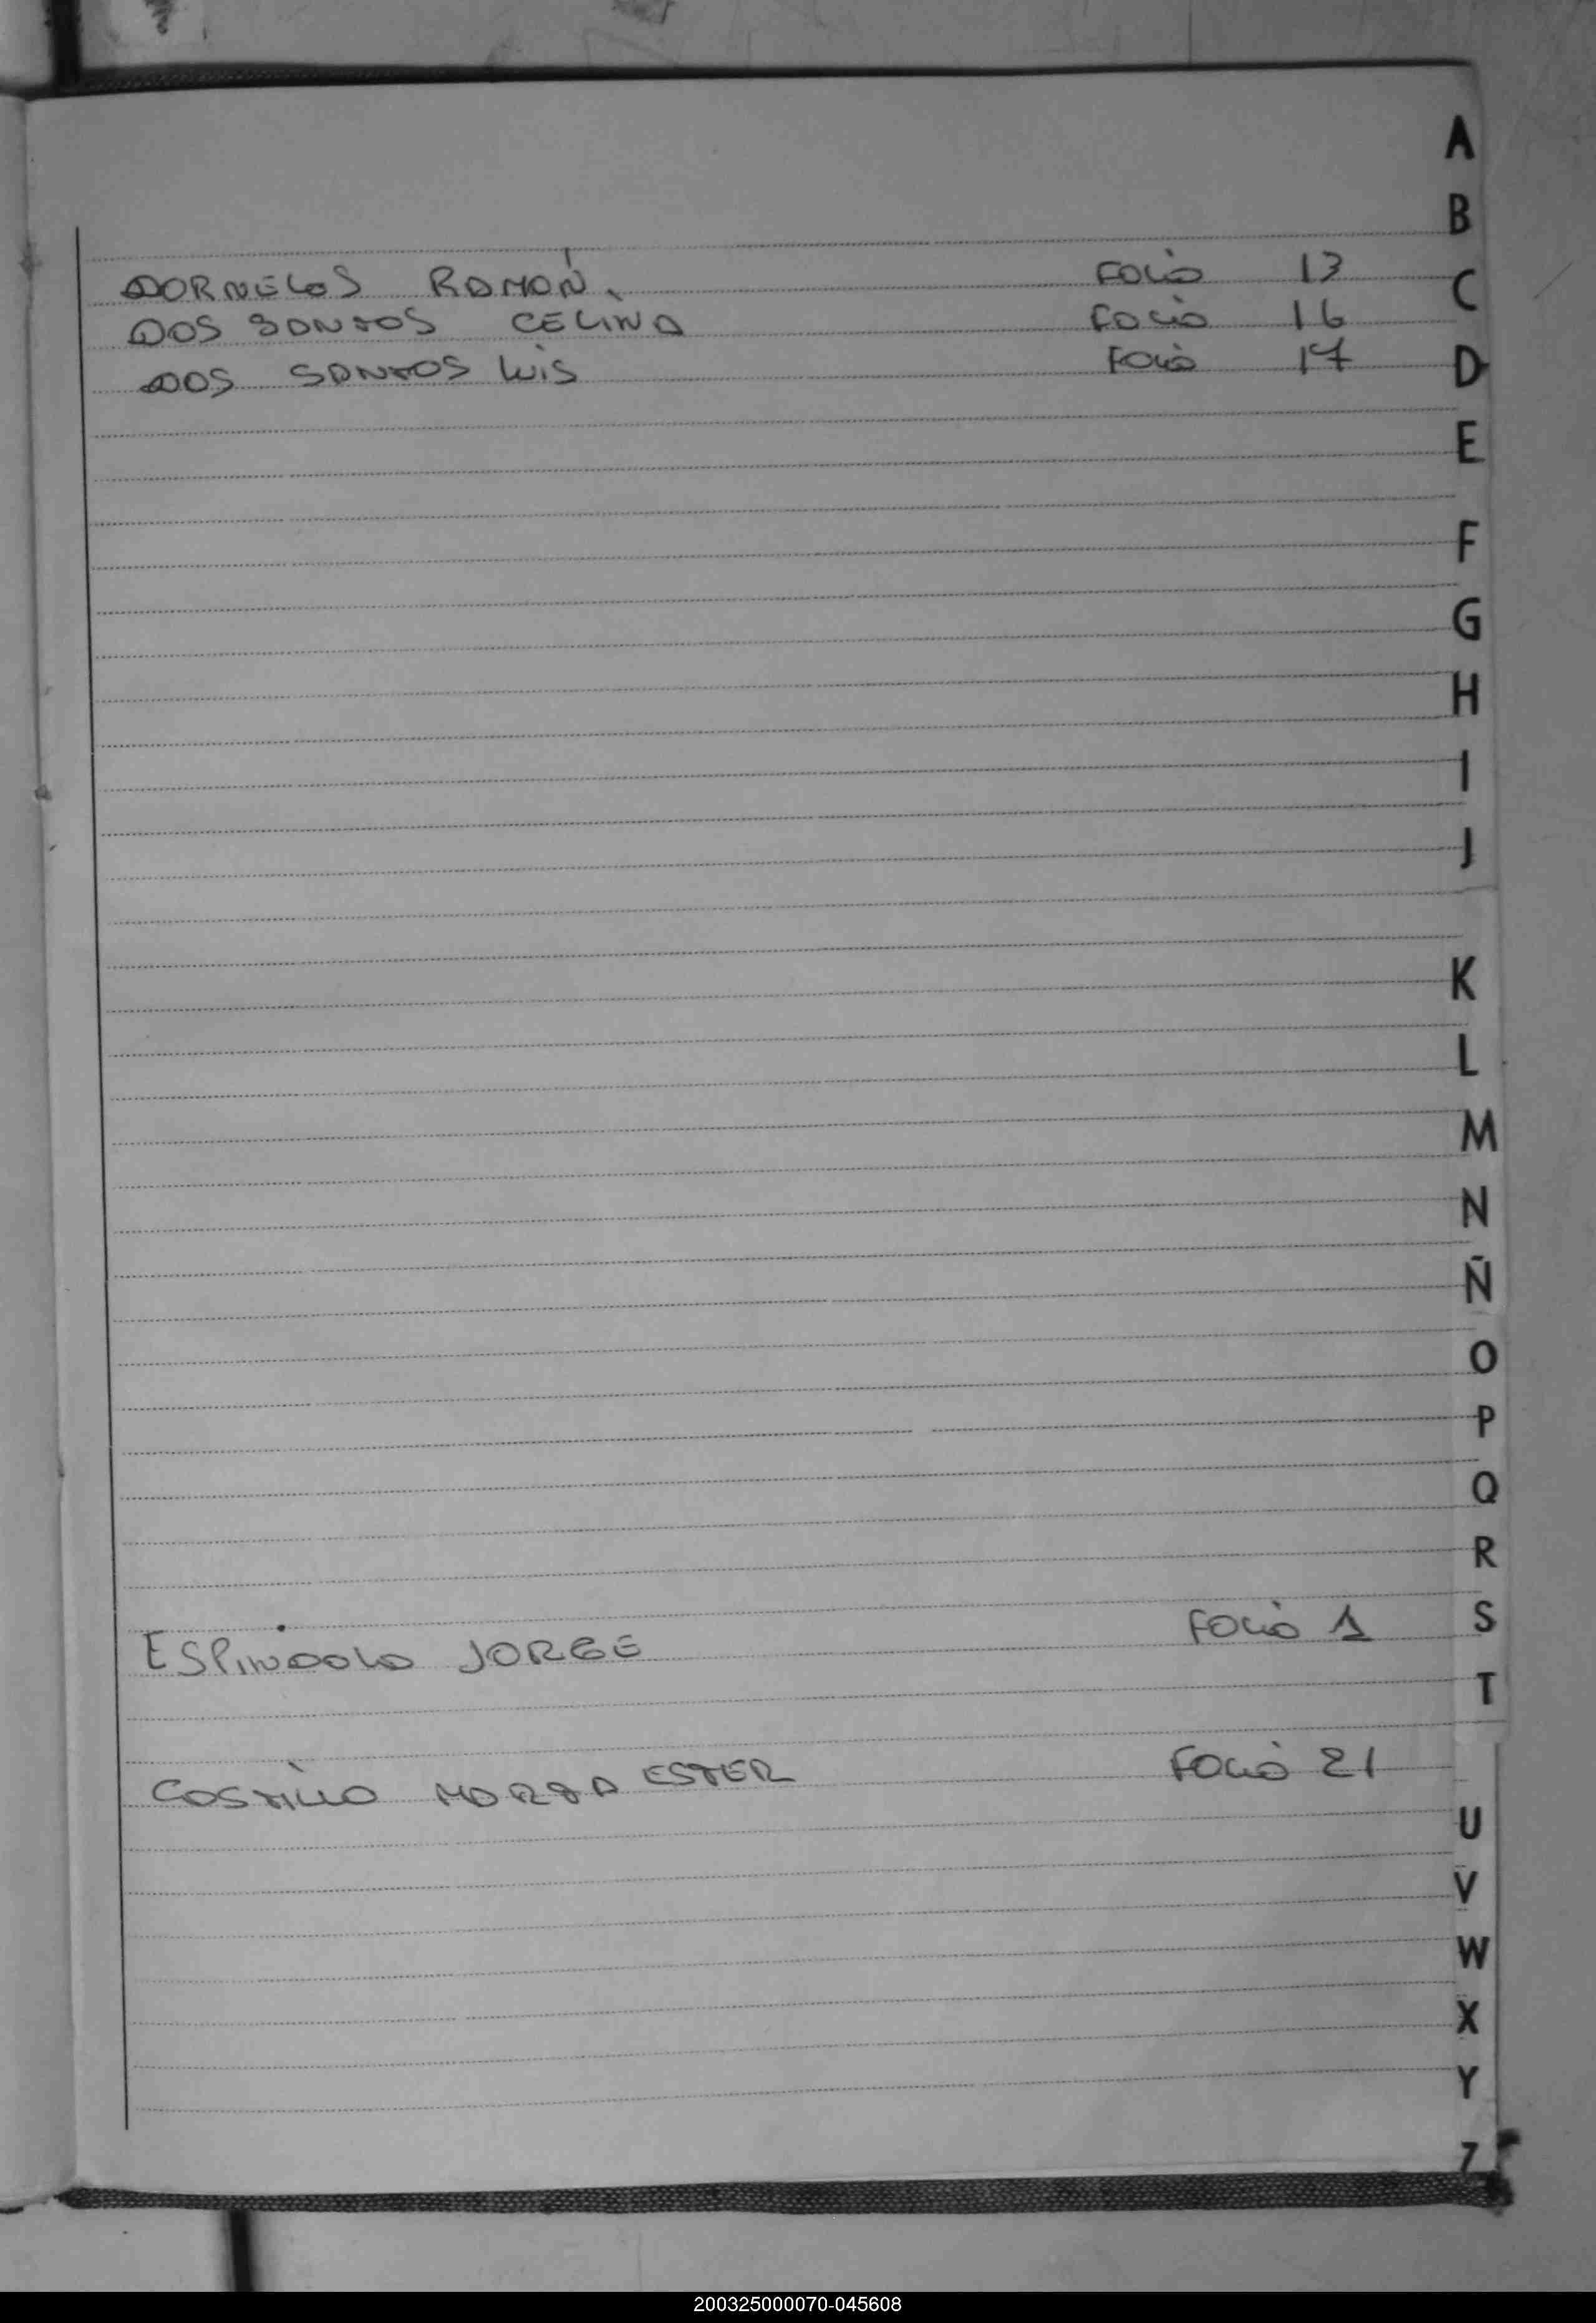 DORNELOS RAMÓN. FOLIO 13
DOS SANTOS CELINA FOLIO 16
DOS SANTOS LUIS FOLIO 17
ESPINDOLA JORGE FOLIO 1
CASTILLO MARTA ESTER FOLIO 21
A
B
C
D
E
F
G
H
I
J
K
L
M
N
Ñ
O
P
Q
R
S
T
U
V
W
X
Y
Z
200325000070-045608